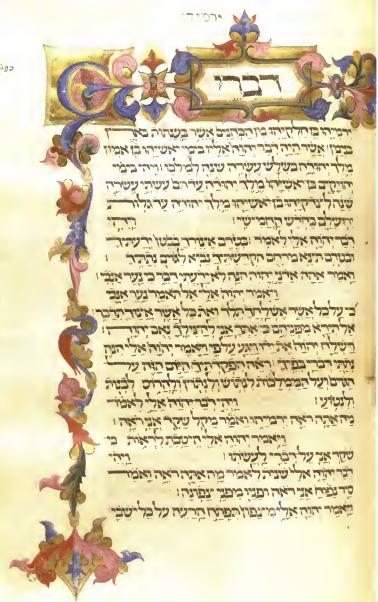 ירמיה
דברי
ירמיהו בן חלקיהו מן הכהנים אשר בענתות בארץ
בנימן: אשר היה דבר יהוה אליו בימי יאשיהו בן אמון
מלך יהודה בשלש עשרה שנה למלכו ויהי בימי
יהויקים בן יאשיהו מלך יהודה עד תם עשתי עשרה
שנה לצדקיהו בן יאשיהו מלך יהודה עד גלות
ירושלם בחדש החמישי: ויהי
דבר יהוה אלי לאמר: בטרם אצורך בבטן ידעתיך
ובטרם תצא מרחם הקדשתיך נביא לגוים נתתיך:
ואמר אהה אדני יהוה הנה לא ידעתי דבר כי נער אנכי:
ויאמר יהוה אלי אל תאמר נער אנכי
כי על כל אשר אשלחך תלך ואת כל אשר אצוך תדבר
אל תירא מפניהם כי אתך אני להצלך נאם יהוה
וישלח יהוה את ידו ויגע על פי ויאמר יהוה אלי הנה
נתתי דברי בפיך: ראה הפקדתיך היום הזה על
הגוים ועל הממלכות לנתוש ולנתוץ ולהרוס לבנות
ולנטוע: ויהי דבר יהוה אלי לאמר
מה אתה ראה ירמיהו ואמר מקל שקד אני ראה:
ויאמר יהוה אלי היטבת לראות כי
שקד אני על דברי לעשתו: ויהי
דבר יהוה אלי שנית לאמר מה אתה ראה ואמר
סיר נפוח אני ראה ופניו מפני צפונה:
ויאמר יהוה אלי מצפון תפתח הרעה על כל ישבי